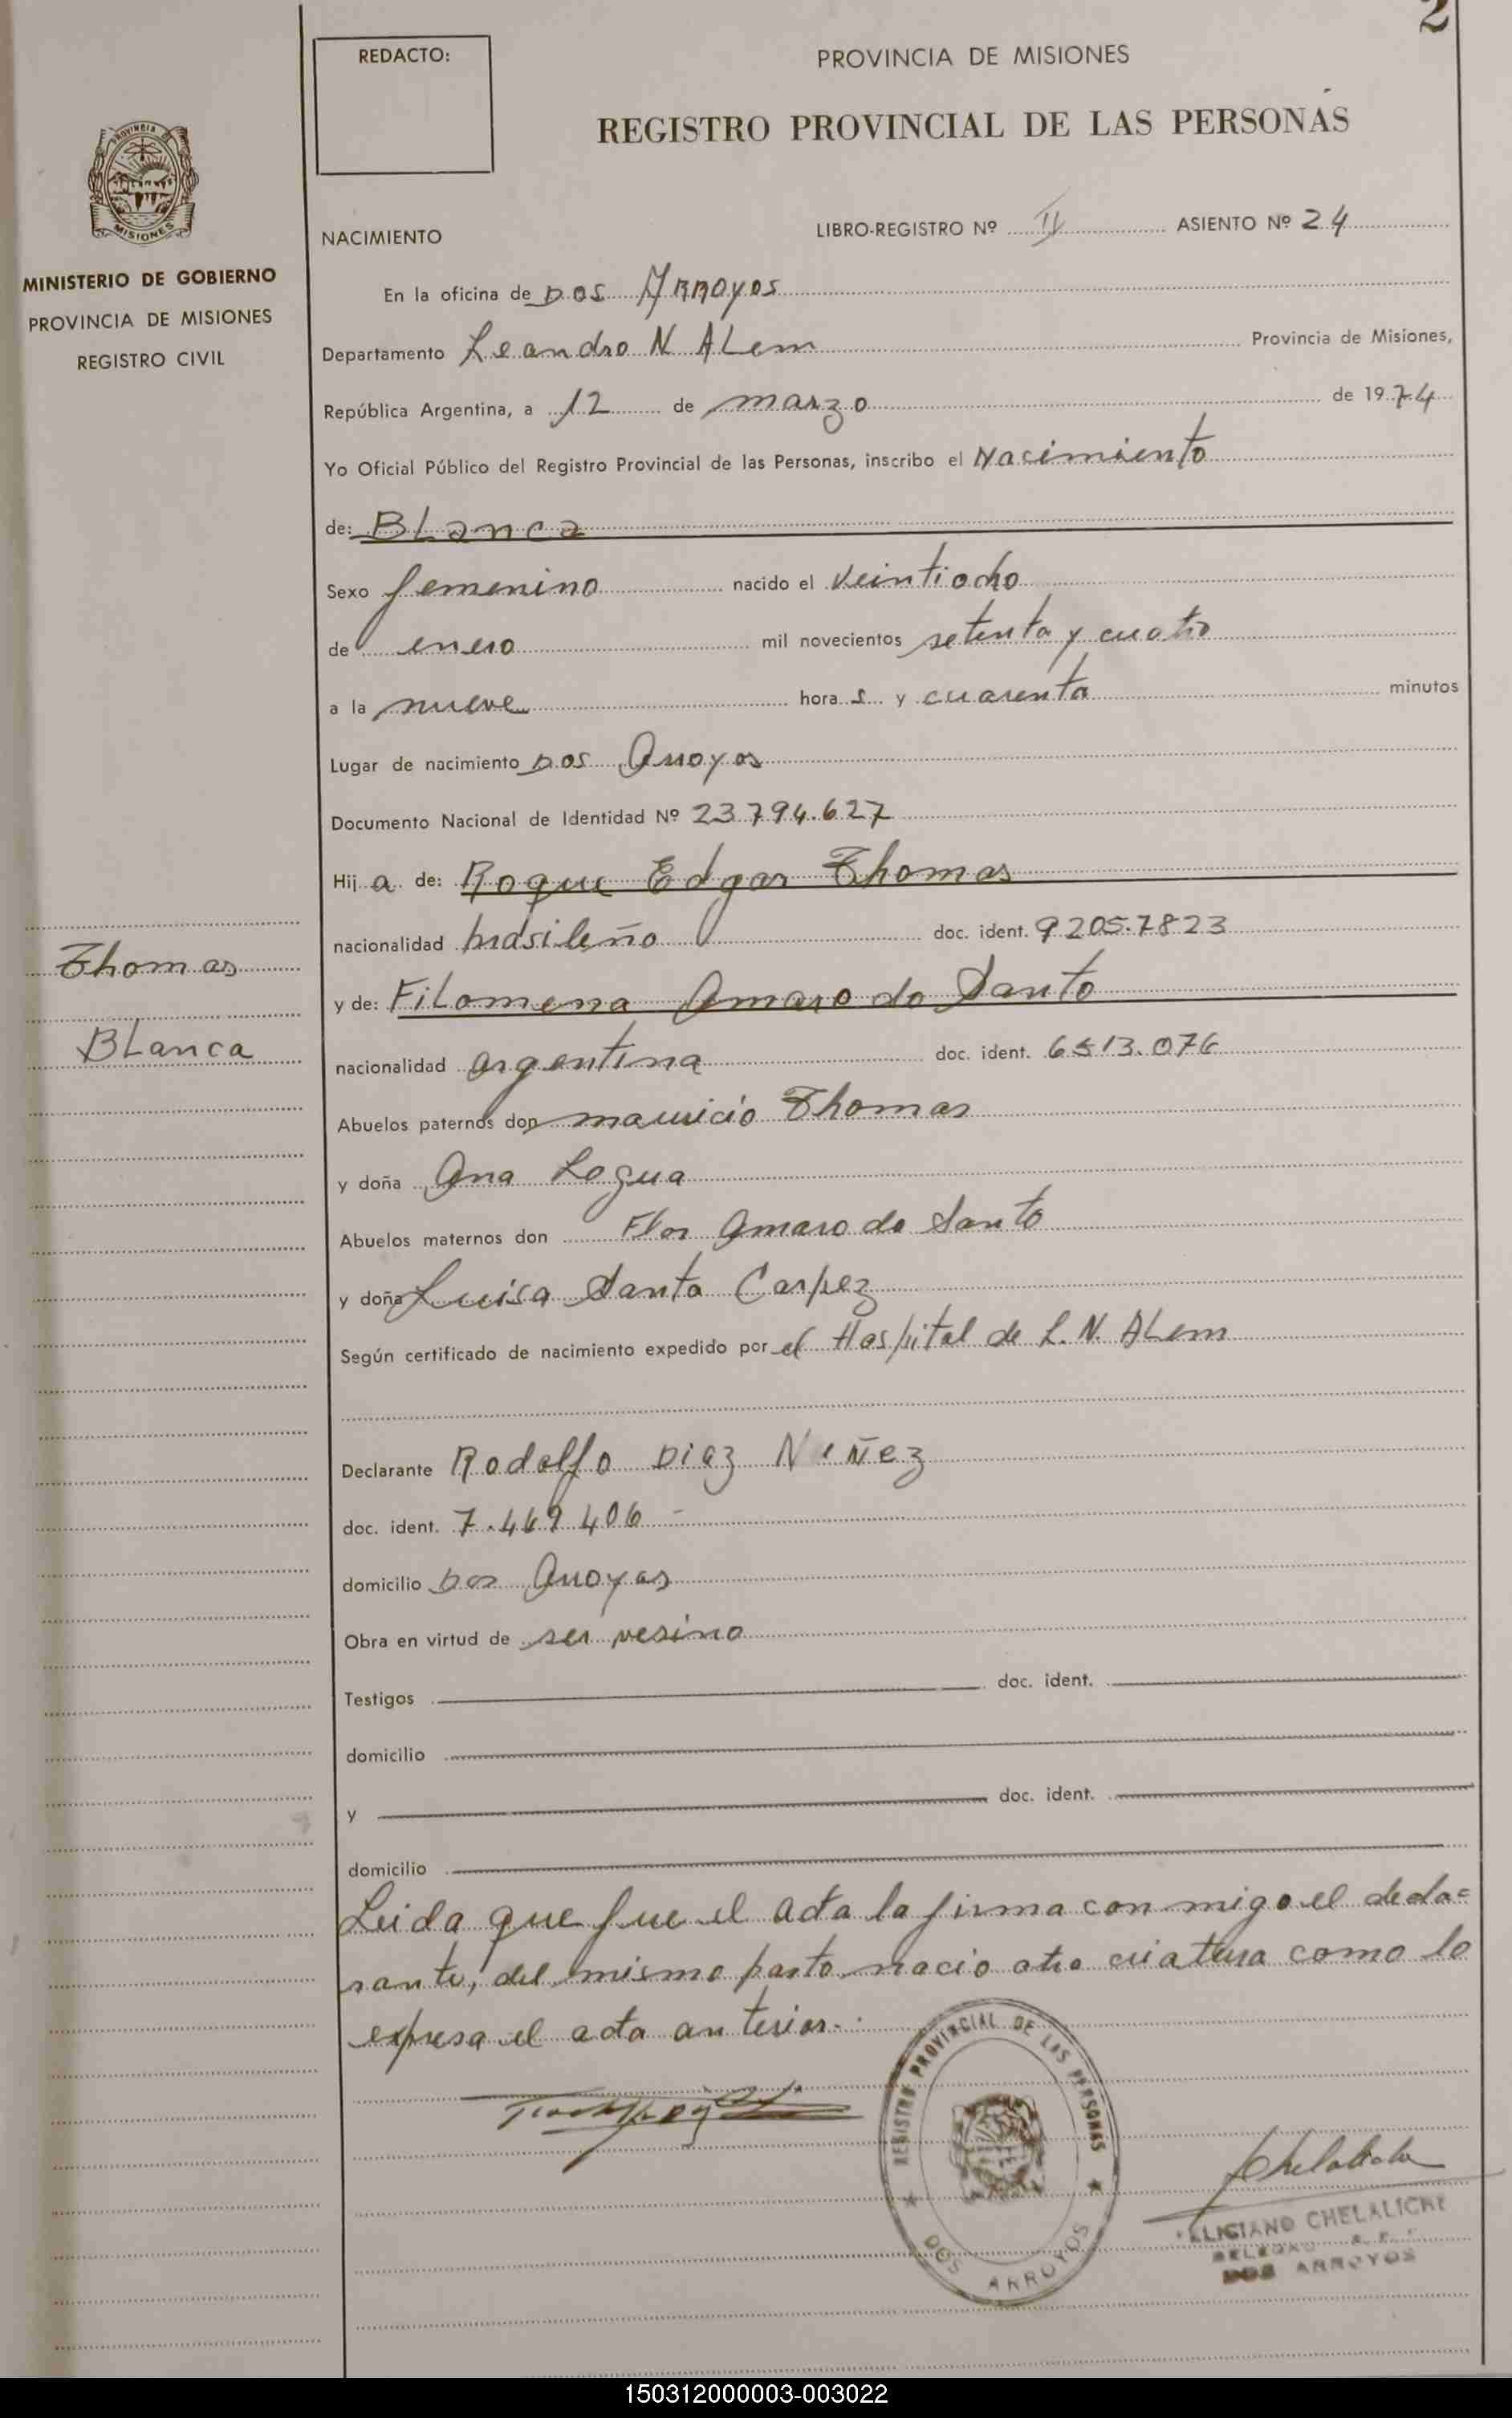 2
REDACTO:
PROVINCIA DE MISIONES
REGISTRO PROVINCIAL DE LAS PERSONAS
PROVINCIA
MISIONES
MINISTERIO DE GOBIERNO
PROVINCIA DE MISIONES
REGISTRO CIVIL
NACIMIENTO
LIBRO-REGISTRO Nº II ASIENTO Nº 24
En la oficina de DOS ARROYOS
Departamento Leandro N ALem Provincia de Misiones,
República Argentina, a 12 de marzo de 1974
Yo Oficial Público del Registro Provincial de las Personas, inscribo el Nacimiento
de: BLanca
Sexo femenino nacido el veintiocho
de enero mil novecientos setenta y cuatro
a la nueve hora s y cuarenta minutos
Lugar de nacimiento DOS Arroyos
Documento Nacional de Identidad Nº 23794.627
Hij a de: Roque Edgar Thomas
nacionalidad brasileño doc. ident. 9205.7823
Thomas
y de: FiLomena Amaro do Santo
BLanca
nacionalidad argentina doc. ident. 6513.076
Abuelos paternos don mauricio Thomas
y doña Ana Logua
Abuelos maternos don Flor Amaro do Santo
y doña Luisa Santa Carpez
Según certificado de nacimiento expedido por el Hospital de L. N. ALem
Declarante Rodolfo Diaz
doc. ident. 7.469406 -
domicilio Dos Arroyos
Obra en virtud de ser vesino
Testigos doc. ident.
domicilio
y doc. ident.
domicilio
Leida que fue el acta la firma con migo el decla=
rante, del mismo parto nacio otra criatura como lo
expresa el acta anterior.
REGISTRO PROVINCIAL DE LAS PERSONAS
DOS ARROYOS
CHELALICHE
DOS ARROYOS
150312000003-003022